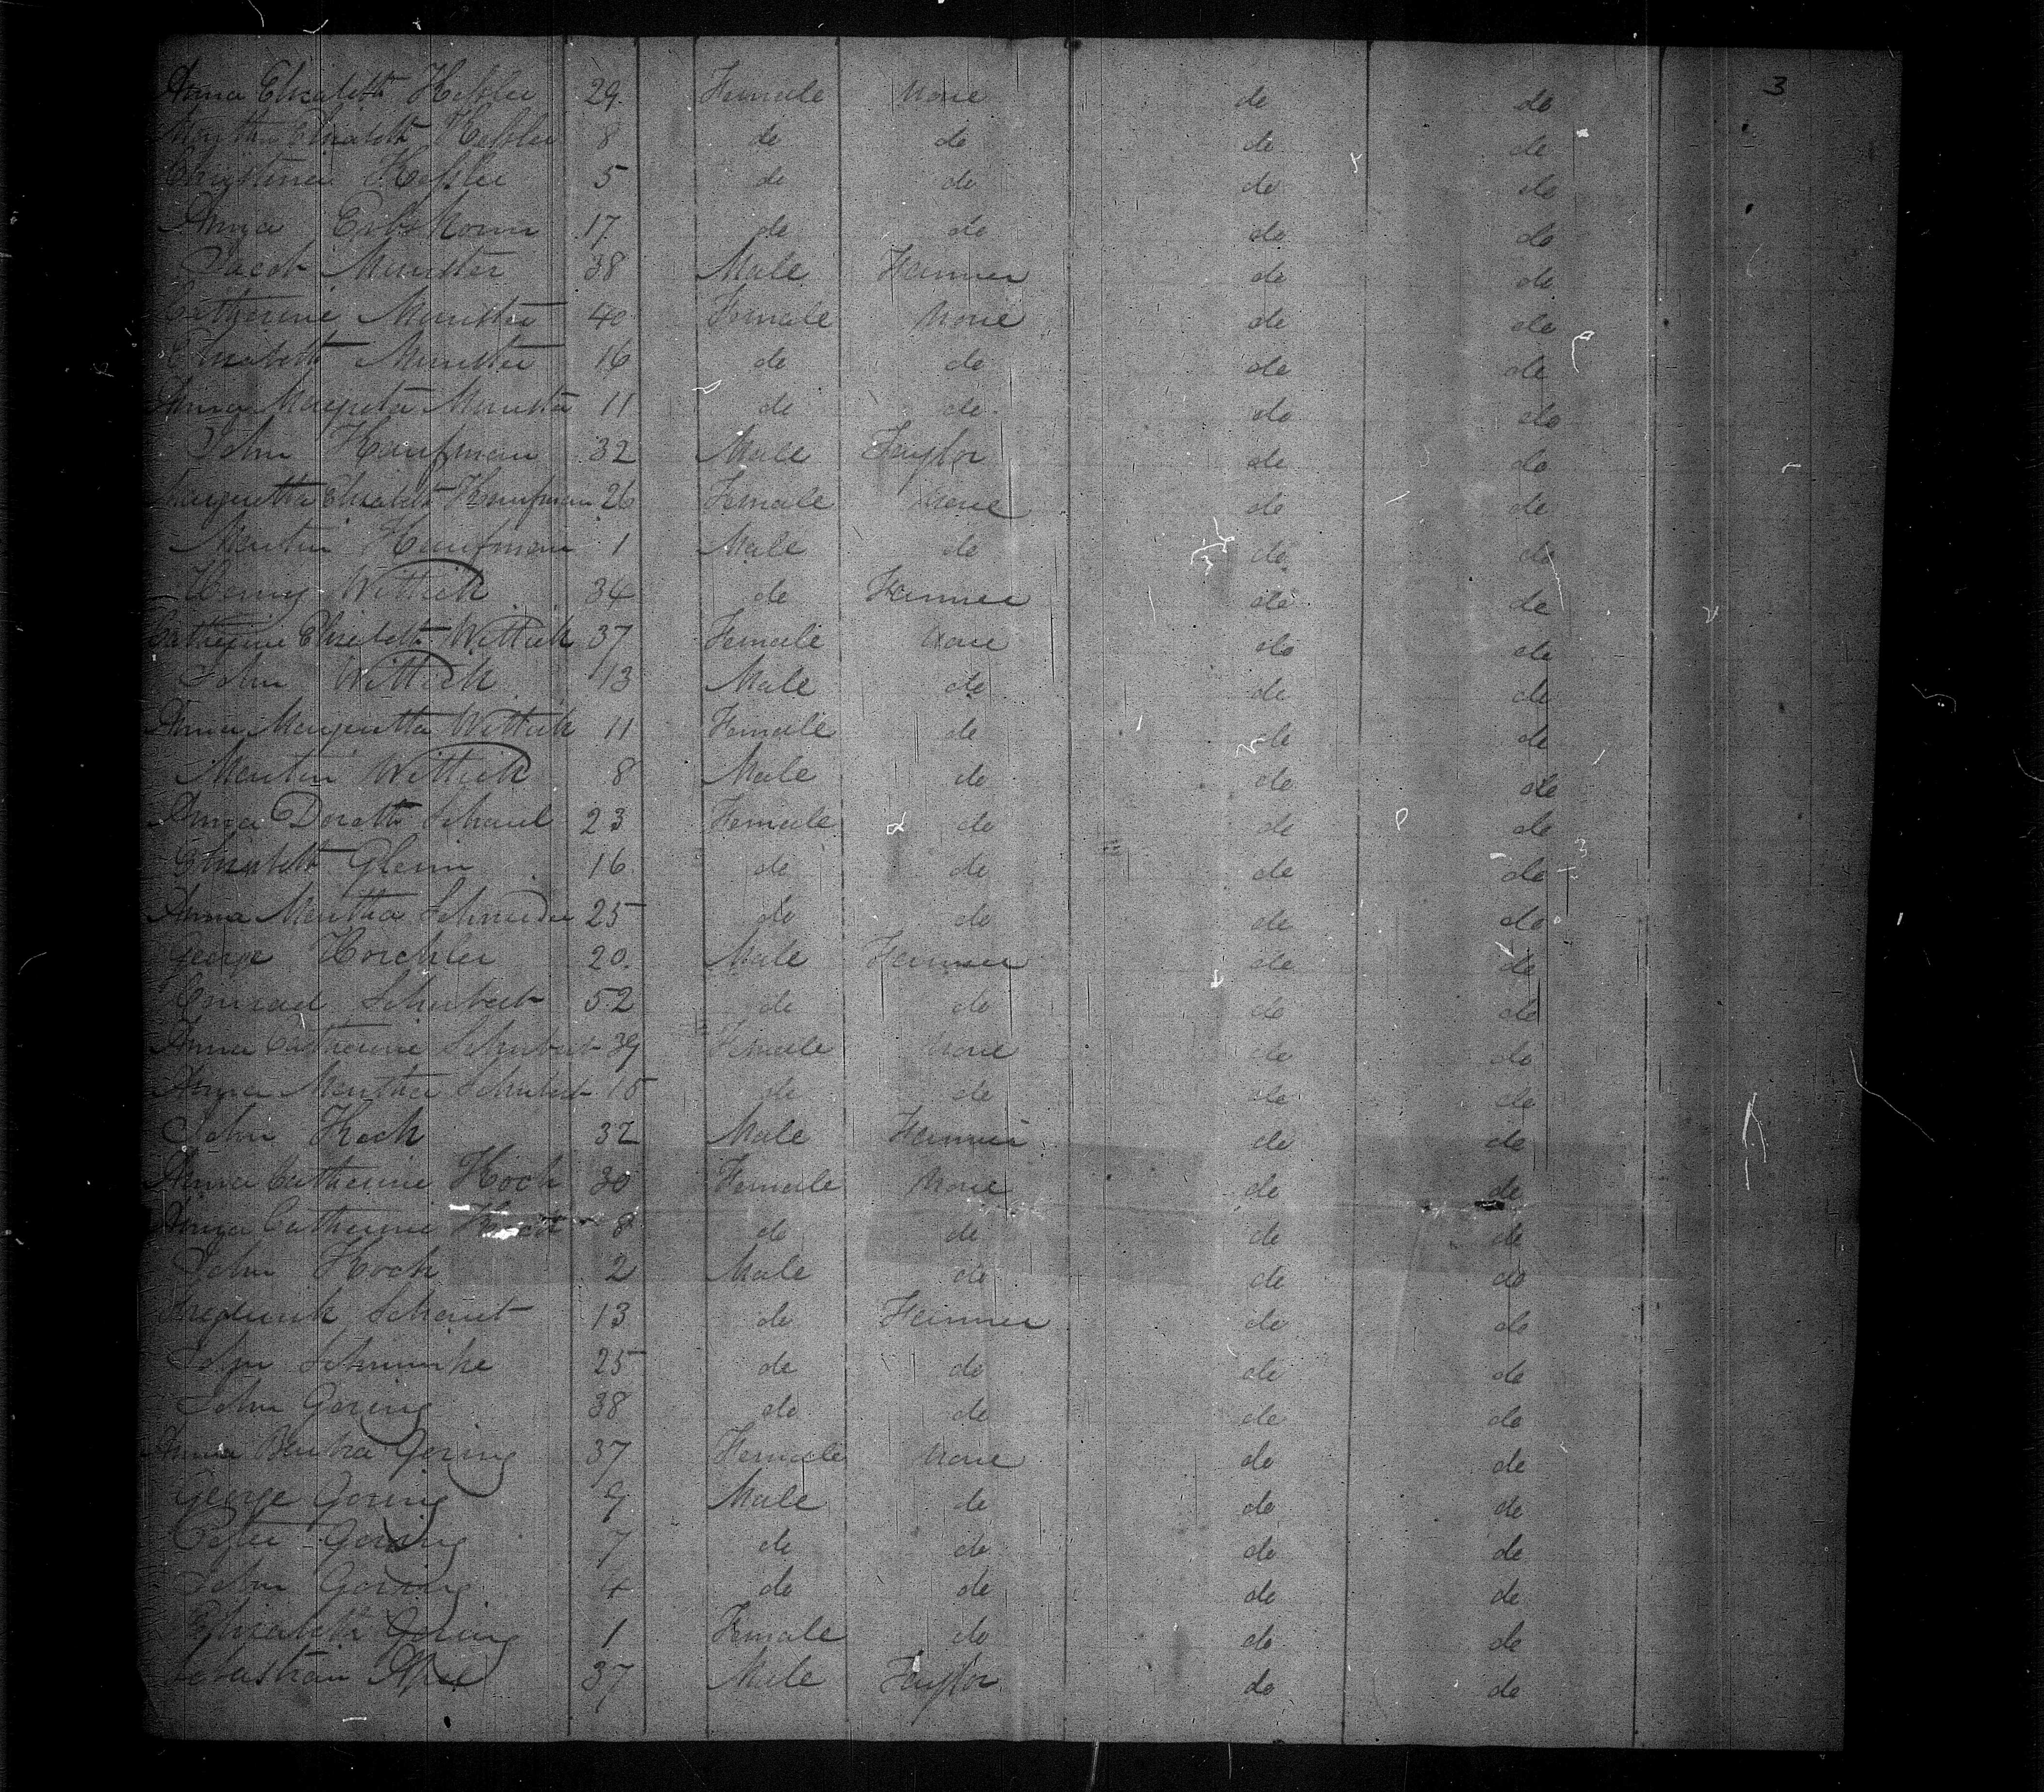 3
Anna Elizabeth Keßler 29 Female None do do
Elizabeth Keßler 8 do do do do
Christina Keßler 5 do do do do
Anna 17 do do do do
Jacob Munster 38 Male Farmer do do
Catherine Munster 40 Female None do do
Elizabeth Munster 16 do do do do
Anna Margreta Munster 11 do do do do
John Kaufman 32 Male Taylor do do
Margretta Elizabeth Kaufman 26 Female None do do
Martin Kaufman 1 Male do do do
Henry Wittich 34 do Farmer do do
Catherine Elizabeth Wittich 37 Female None do do
John Wittich 13 Male do do do
Anna Margretta Wittich 11 Female do do do
Martin Wittich 8 Male do do do
Anna Doroth 23 Female do do do
Elizabeth Glenn 16 do do do do
Anna Martha Schneider 25 do do do do
George 20 Male Farmer do do
Conrad Schubert 52 do do do do
Anna Catherine Schubert 39 Female None do do
Anna Martha Schubert 15 do do do do
John Koch 32 Male Farmer do do
Anna Catherine Koch 30 Female None do do
Anna Catherine Koch 8 do do do do
John Koch 2 Male do do do
Frederick 13 do Farmer do do
John 25 do do do do
John Goring 38 do do do do
Anna Goring 37 Female None do do
George Goring 9 Male do do do
Peter Goring 7 do do do do
John Goring 4 do do do do
Elizabeth Goring 1 Female do do do
Sebastian Apel 37 Male Taylor do do